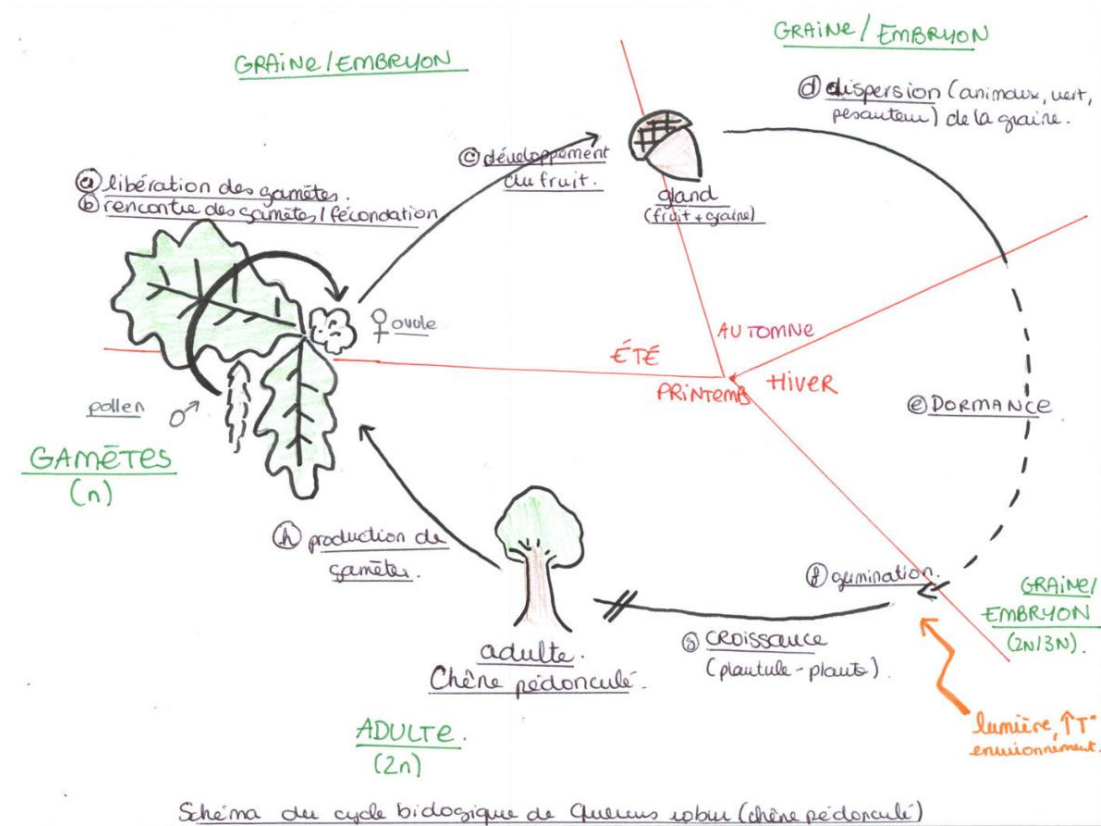 GRAINE/EMBRYON
GRAINE/EMBRYON
ⓓ dispersion (animaux, vent,
pesanteur) de la graine.
ⓒ développement
du fruit.
ⓐ libération des gamètes.
ⓑ rencontre des gamètes/fécondation
gland
(fruit + graine)
♀ ovule
ÉTÉ
AUTOMNE
PRINTEMPS
HIVER
ⓔ DORMANCE
pollen ♂
GAMÈTES
(n)
ⓗ production de
gamètes.
ⓕ germination.
GRAINE/
EMBRYON
(2N/3N).
ⓖ CROISSANCE
(plantule - plante).
adulte.
Chêne pédonculé.
lumière, ↑T°
environnement.
ADULTE.
(2n)
Schéma du cycle biologique de Quercus robur (chêne pédonculé)